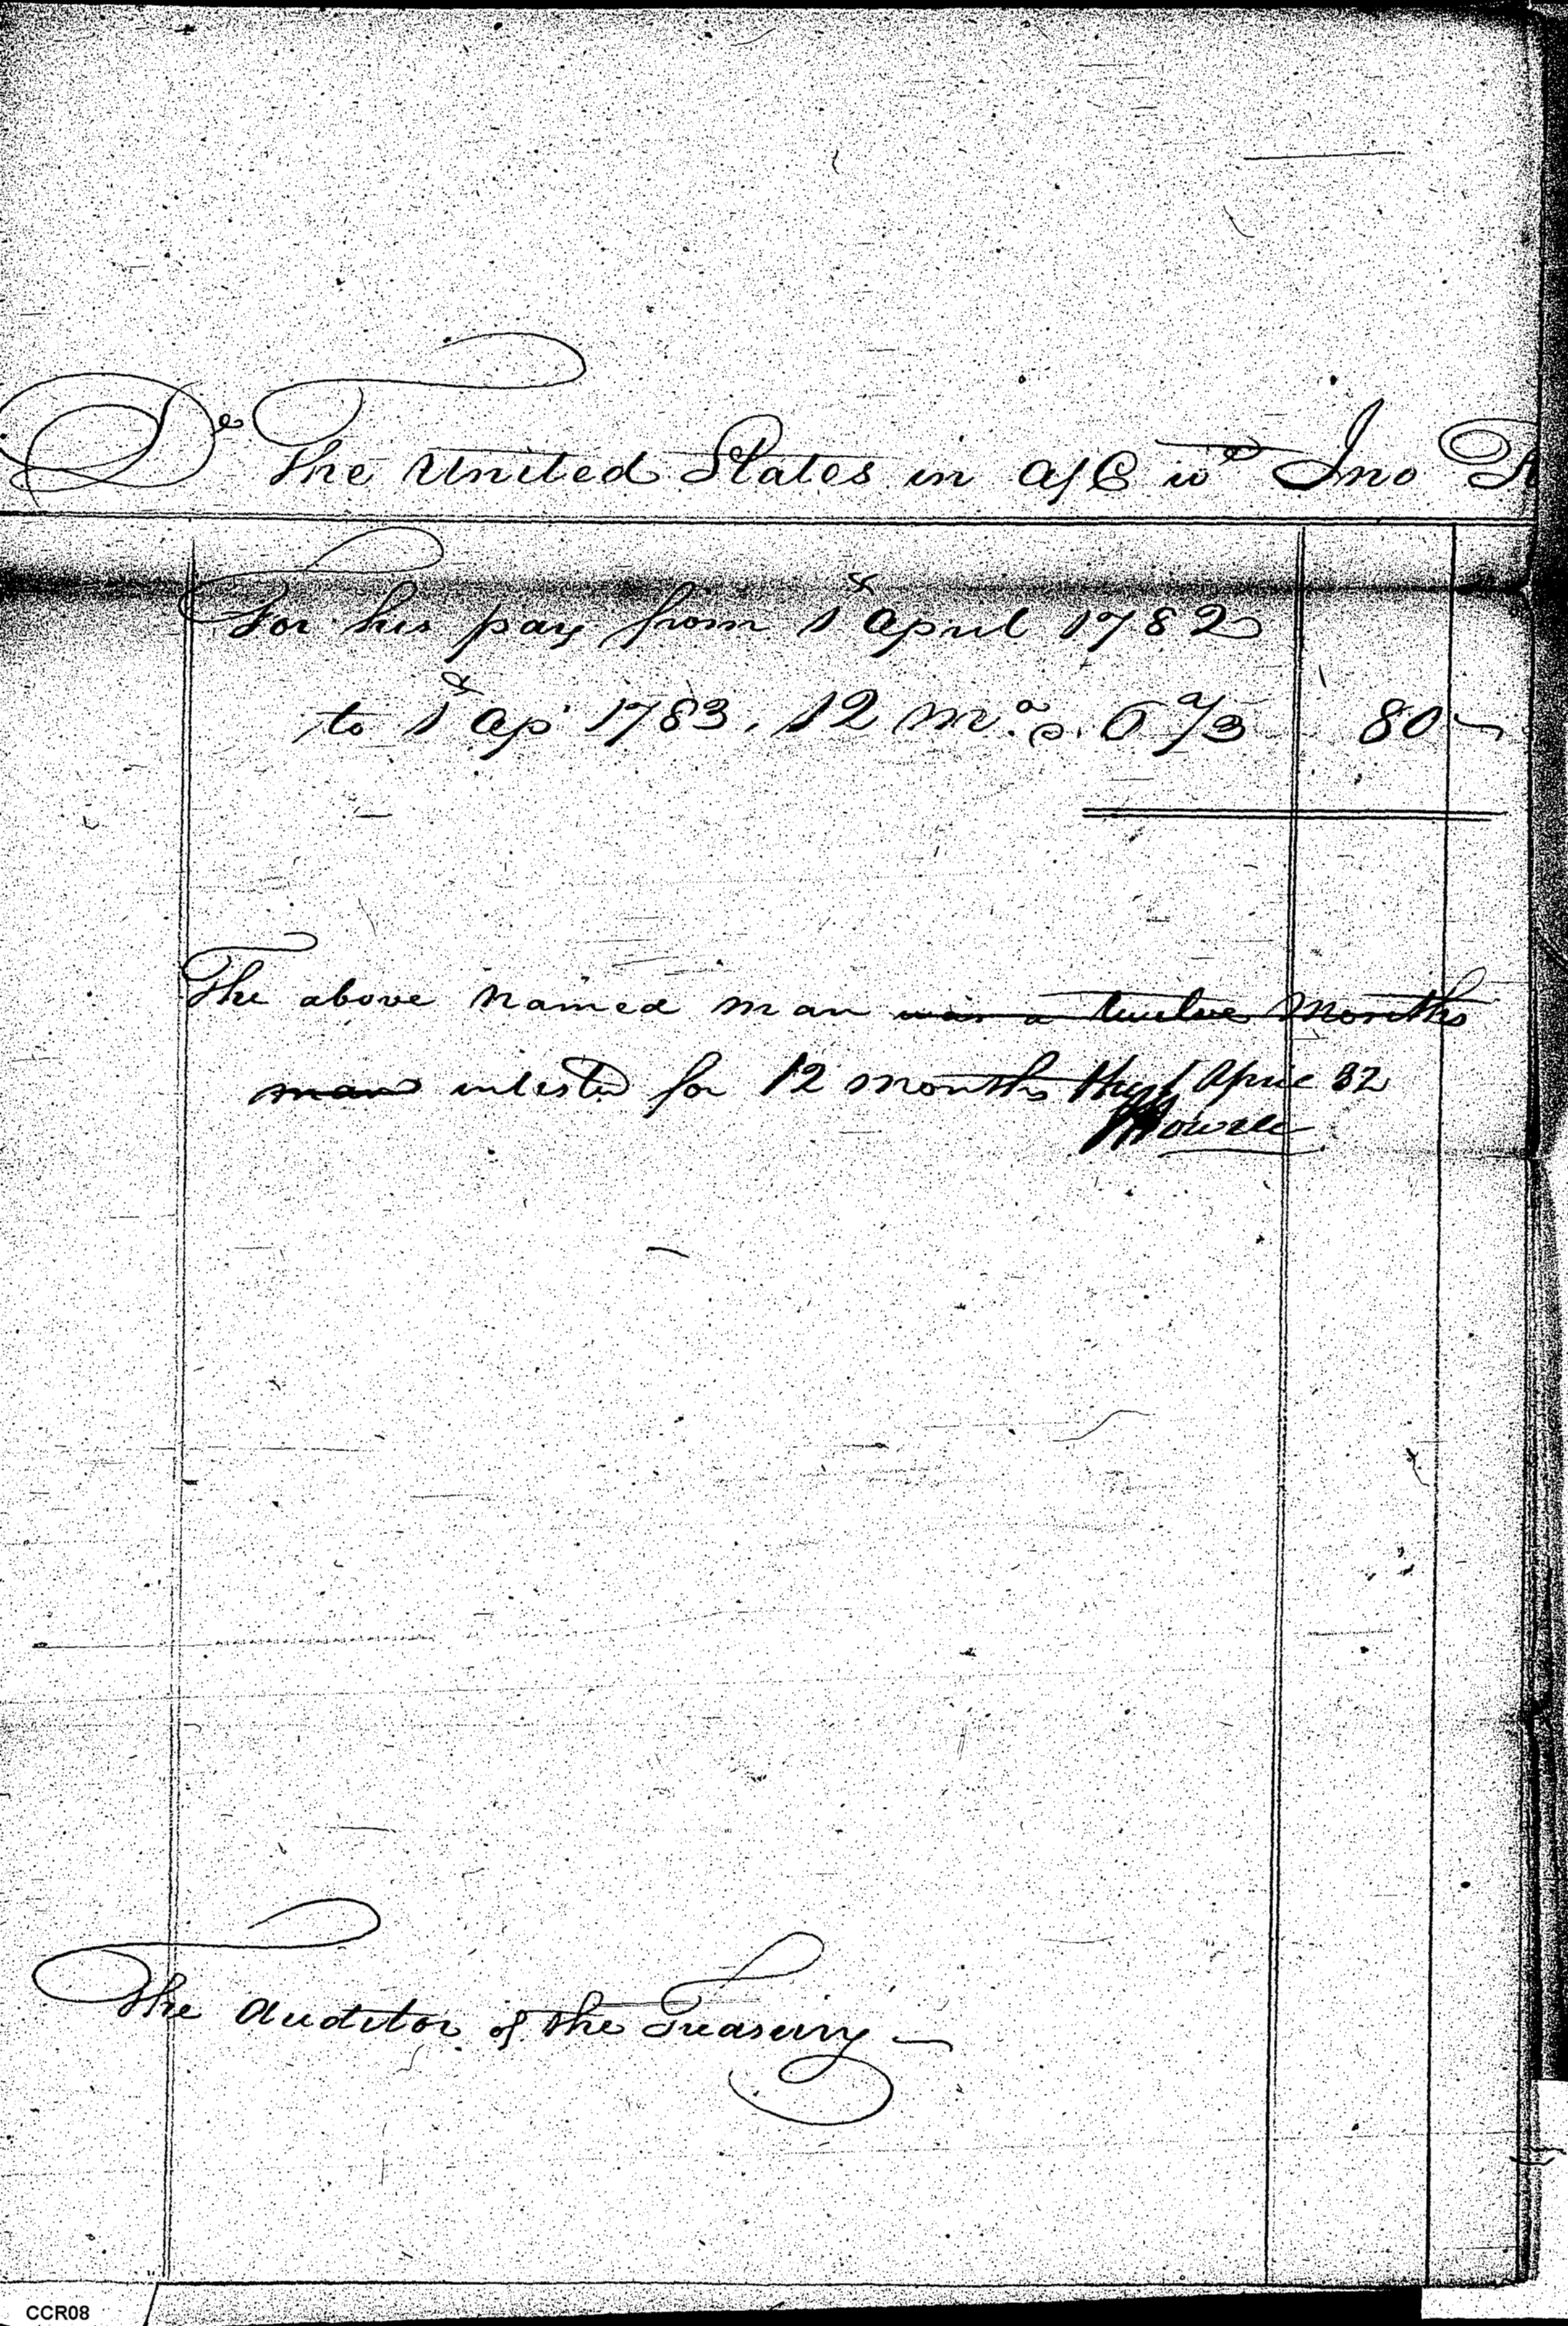 Dr The United States in a/C wth Jno
For his pay from 1st April 1782
to 1st Ap 1783. 12 Mos. @ 6 2/3 80
The above named man was a twelve Months
man inlested for 12 months the 1 April 82
JHowell
The Auditor of the Treasury
CCR08